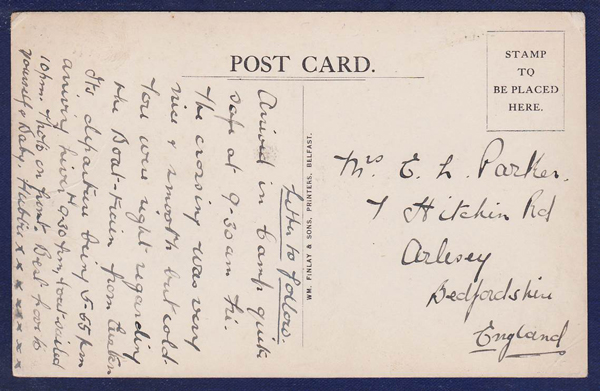 POST CARD.
STAMP
TO
BE PLACED
HERE.
WM. FINLAY & SONS, PRINTERS, BELFAST.
Letter to follow.
Arrived in Camp quite
safe at 9-30am Fri.
The crossing was very
nice & smooth but cold.
You were right regarding
the Boat-train from
Its departure being 5-55pm
arriving 9-30pm, boat sailed
10pm. Photo on front. Best love to
yourself & Baby, Hubbie x x x x x x x
Mrs E. L. Parker.
7 Hitchin Rd
Arlesey
Bedfordshire
England